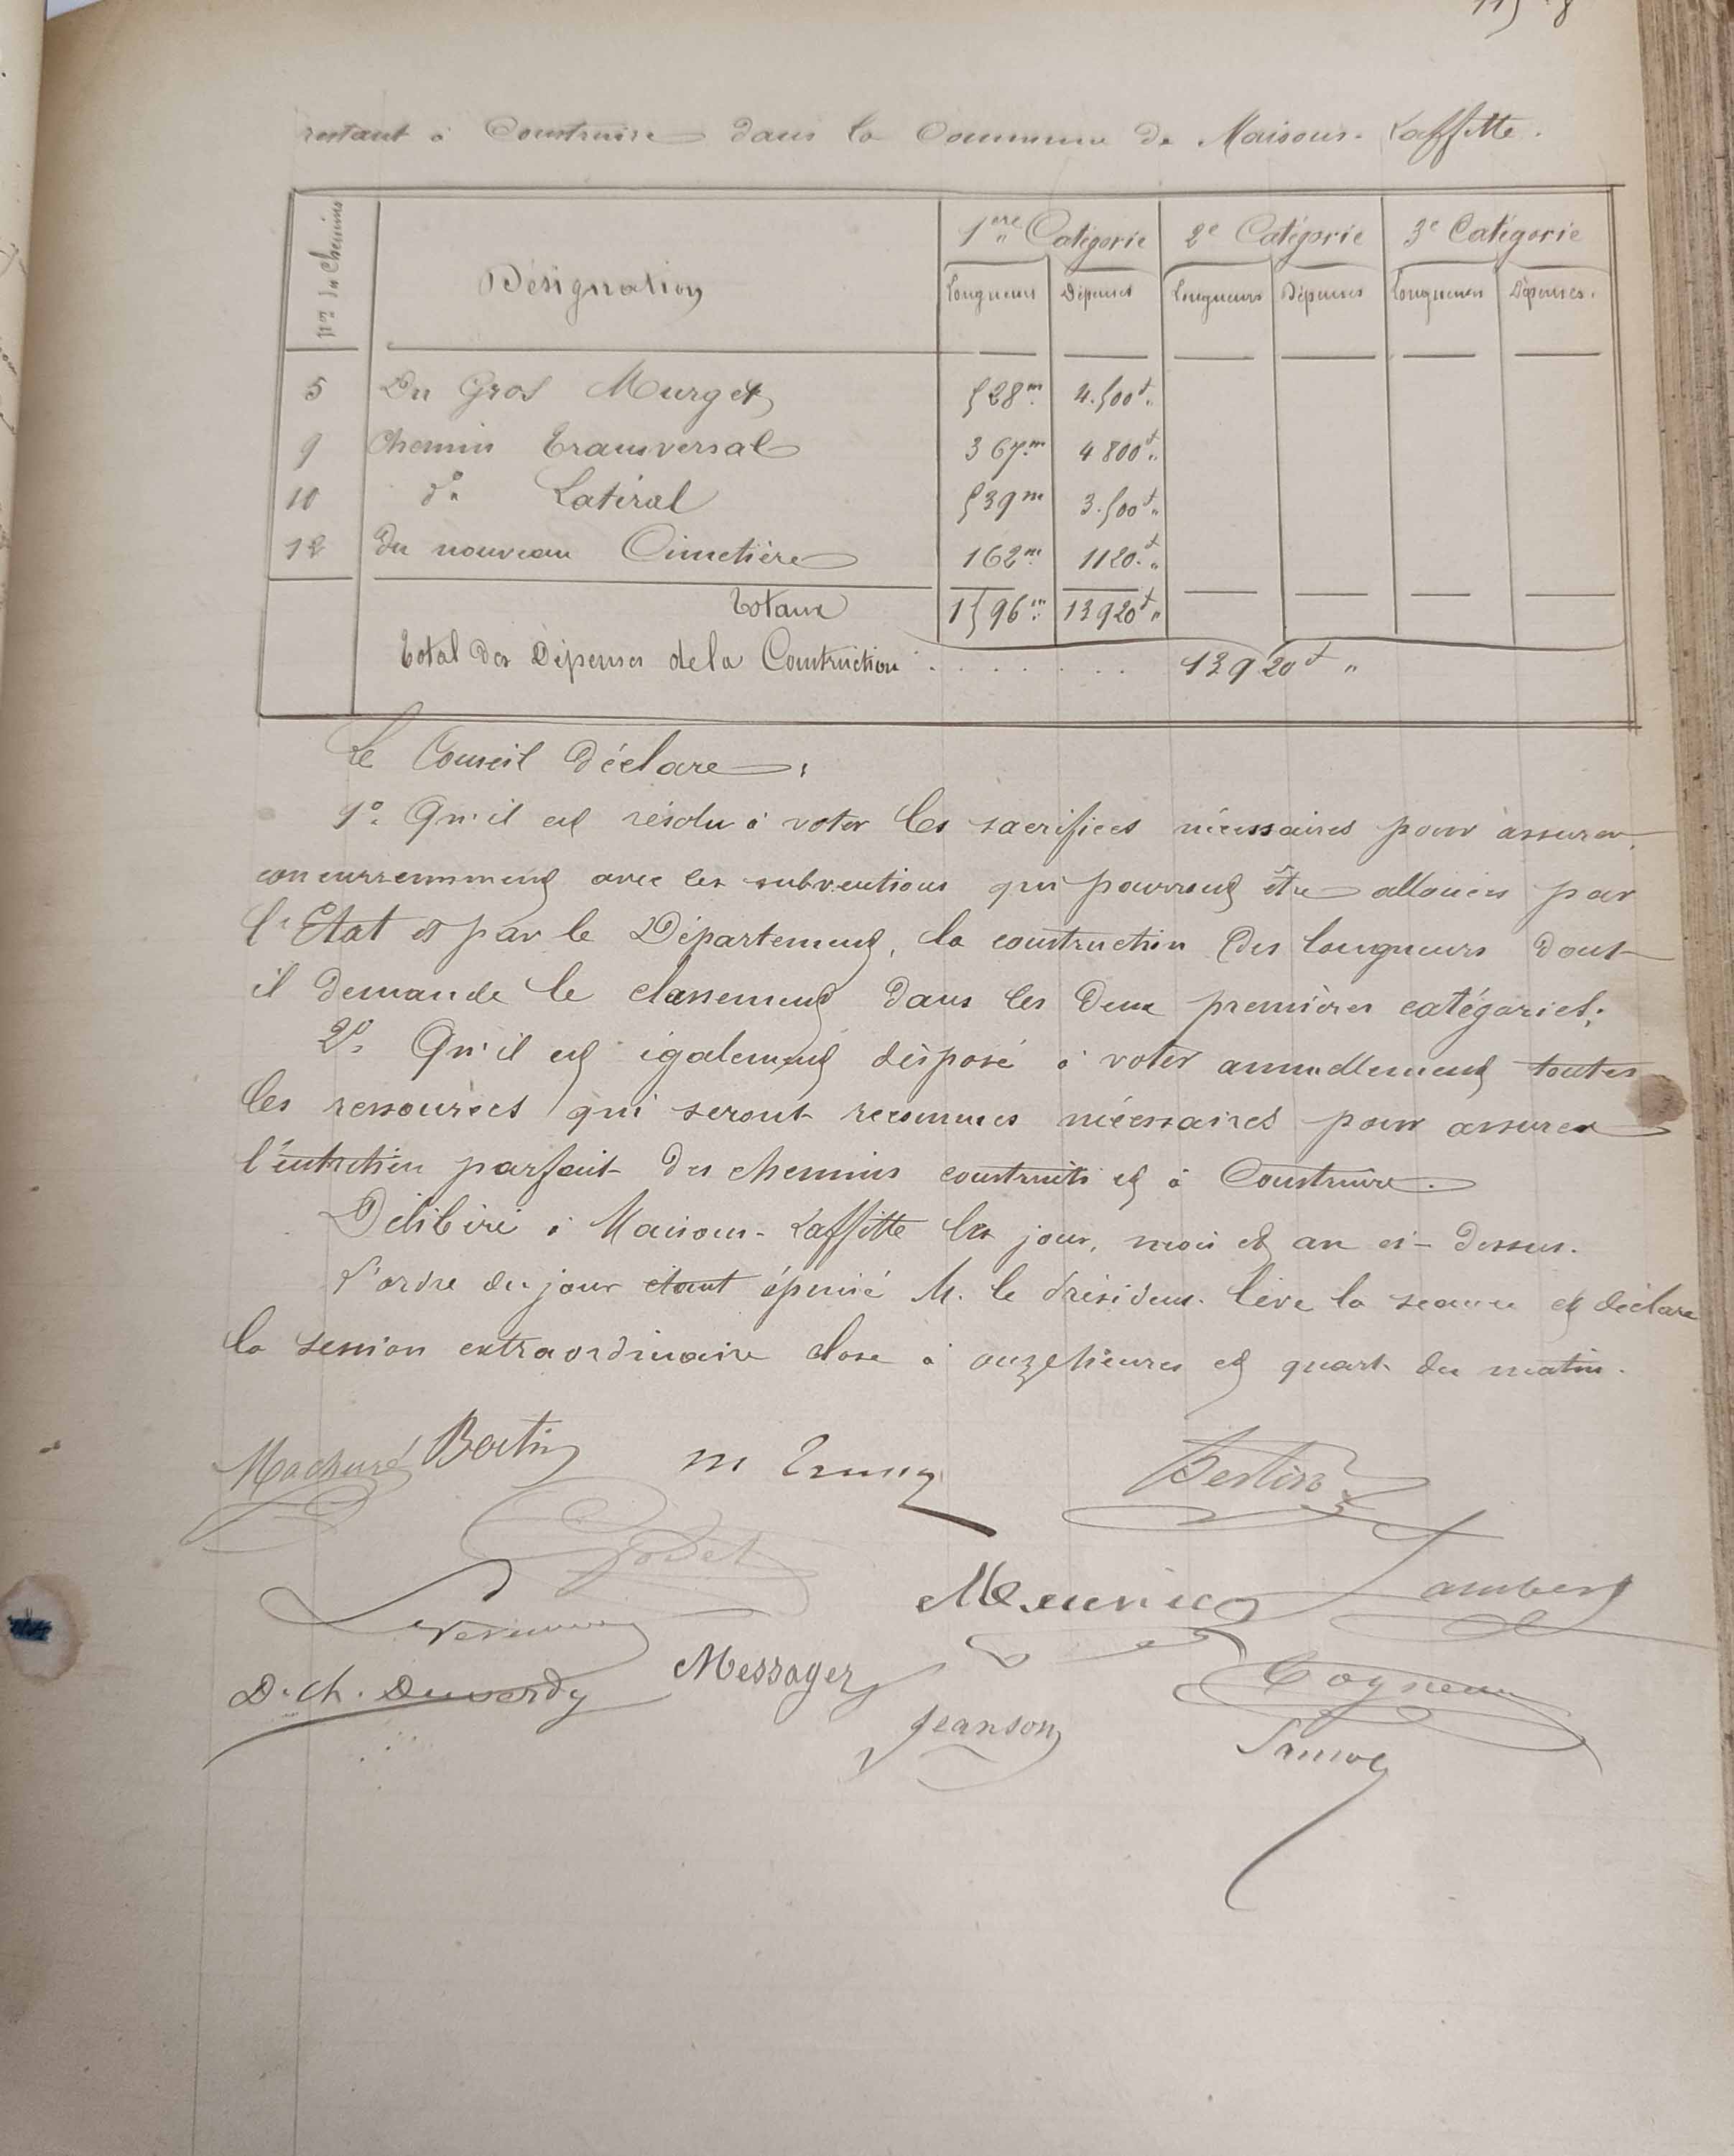 restant à Construire dans la Commune de Maisons-Laffitte.
Nos des Chemins
Désignation
1ère Catégorie 2e Catégorie 3e Catégorie
Longueurs Dépenses Longueurs Dépenses Longueurs Dépenses.
5 Du Gros Murget 528m 4.500f"
9 Chemin Transversal 367m 4800f"
10 do Latéral 539m 3.500f"
12 du nouveau Cimetière 162m 1120f"
Totaux 1596m 13920f"
Total des Dépenses de la Construction . . . . . . . 13920f "
Le Conseil déclare :
1o Qu'il est résolu à voter les sacrifices nécessaires pour assurer,
concurremment avec les subventions qui pourront être allouées par
l'Etat et par le Département, la construction des longueurs dont
il demande le classement dans les deux premières catégories;
2o Qu'il est également disposé à voter annuellement toutes
les ressources qui seront reconnues nécessaires pour assurer
l'entretien parfait des chemins construits et à Construire.
Délibéré à Maisons-Laffitte les jour, mois et an ci-dessus.
L'ordre du jour étant épuisé M. le Président lève la séance et déclare
la session extraordinaire close à onze heures et quart du matin.
Machuré Bertin m Bertin
Godet
Meunier Lambert
D. Ch. Duverdy Messager Coyneau
Jeanson